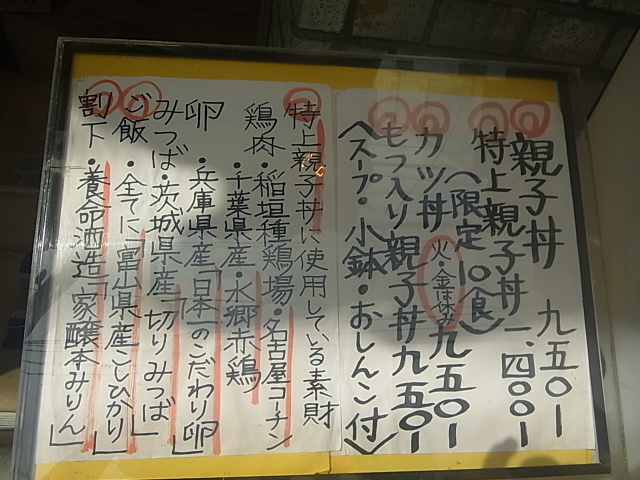 親子丼 九五〇ー
特上親子丼 一、四〇〇ー
（限定一〇食）
カツ丼 火・金は休み 九五〇ー
もつ入り親子丼 九五〇ー
（スープ・小鉢・おしんこ付）
特上親子丼に使用している素財
鶏肉・稲垣種鶏場・名古屋コーチン
・千葉県産・水郷赤鶏
卵・兵庫県産「日本一のこだわり卵」
みつば・茨城県産「切りみつば」
ご飯・全てに「富山県産こしひかり」
割下・養命酒造「家醸本みりん」